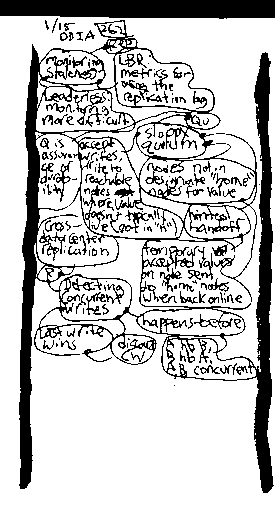 1/15
DDIA
monitoring
staleness
LBR:
metrics for
the
replication lag
Leaderless:
monitoring
more difficult
Qu
sloppy
quorum
Q is
assurance
of
durab-
ility
accept
writes,
write to
reachable
nodes
where value
doesn't typically
live (not in "n")
nodes not in
designate "home"
nodes for value
hinted
handoff
cross-
datacenter
replication
temporary
accepted values
on node sent
to "home" nodes
when back online
Detecting
concurrent
writes
happens-before
Last write
wins
discard
cw
A hb B,
B hb A,
A B concurrent